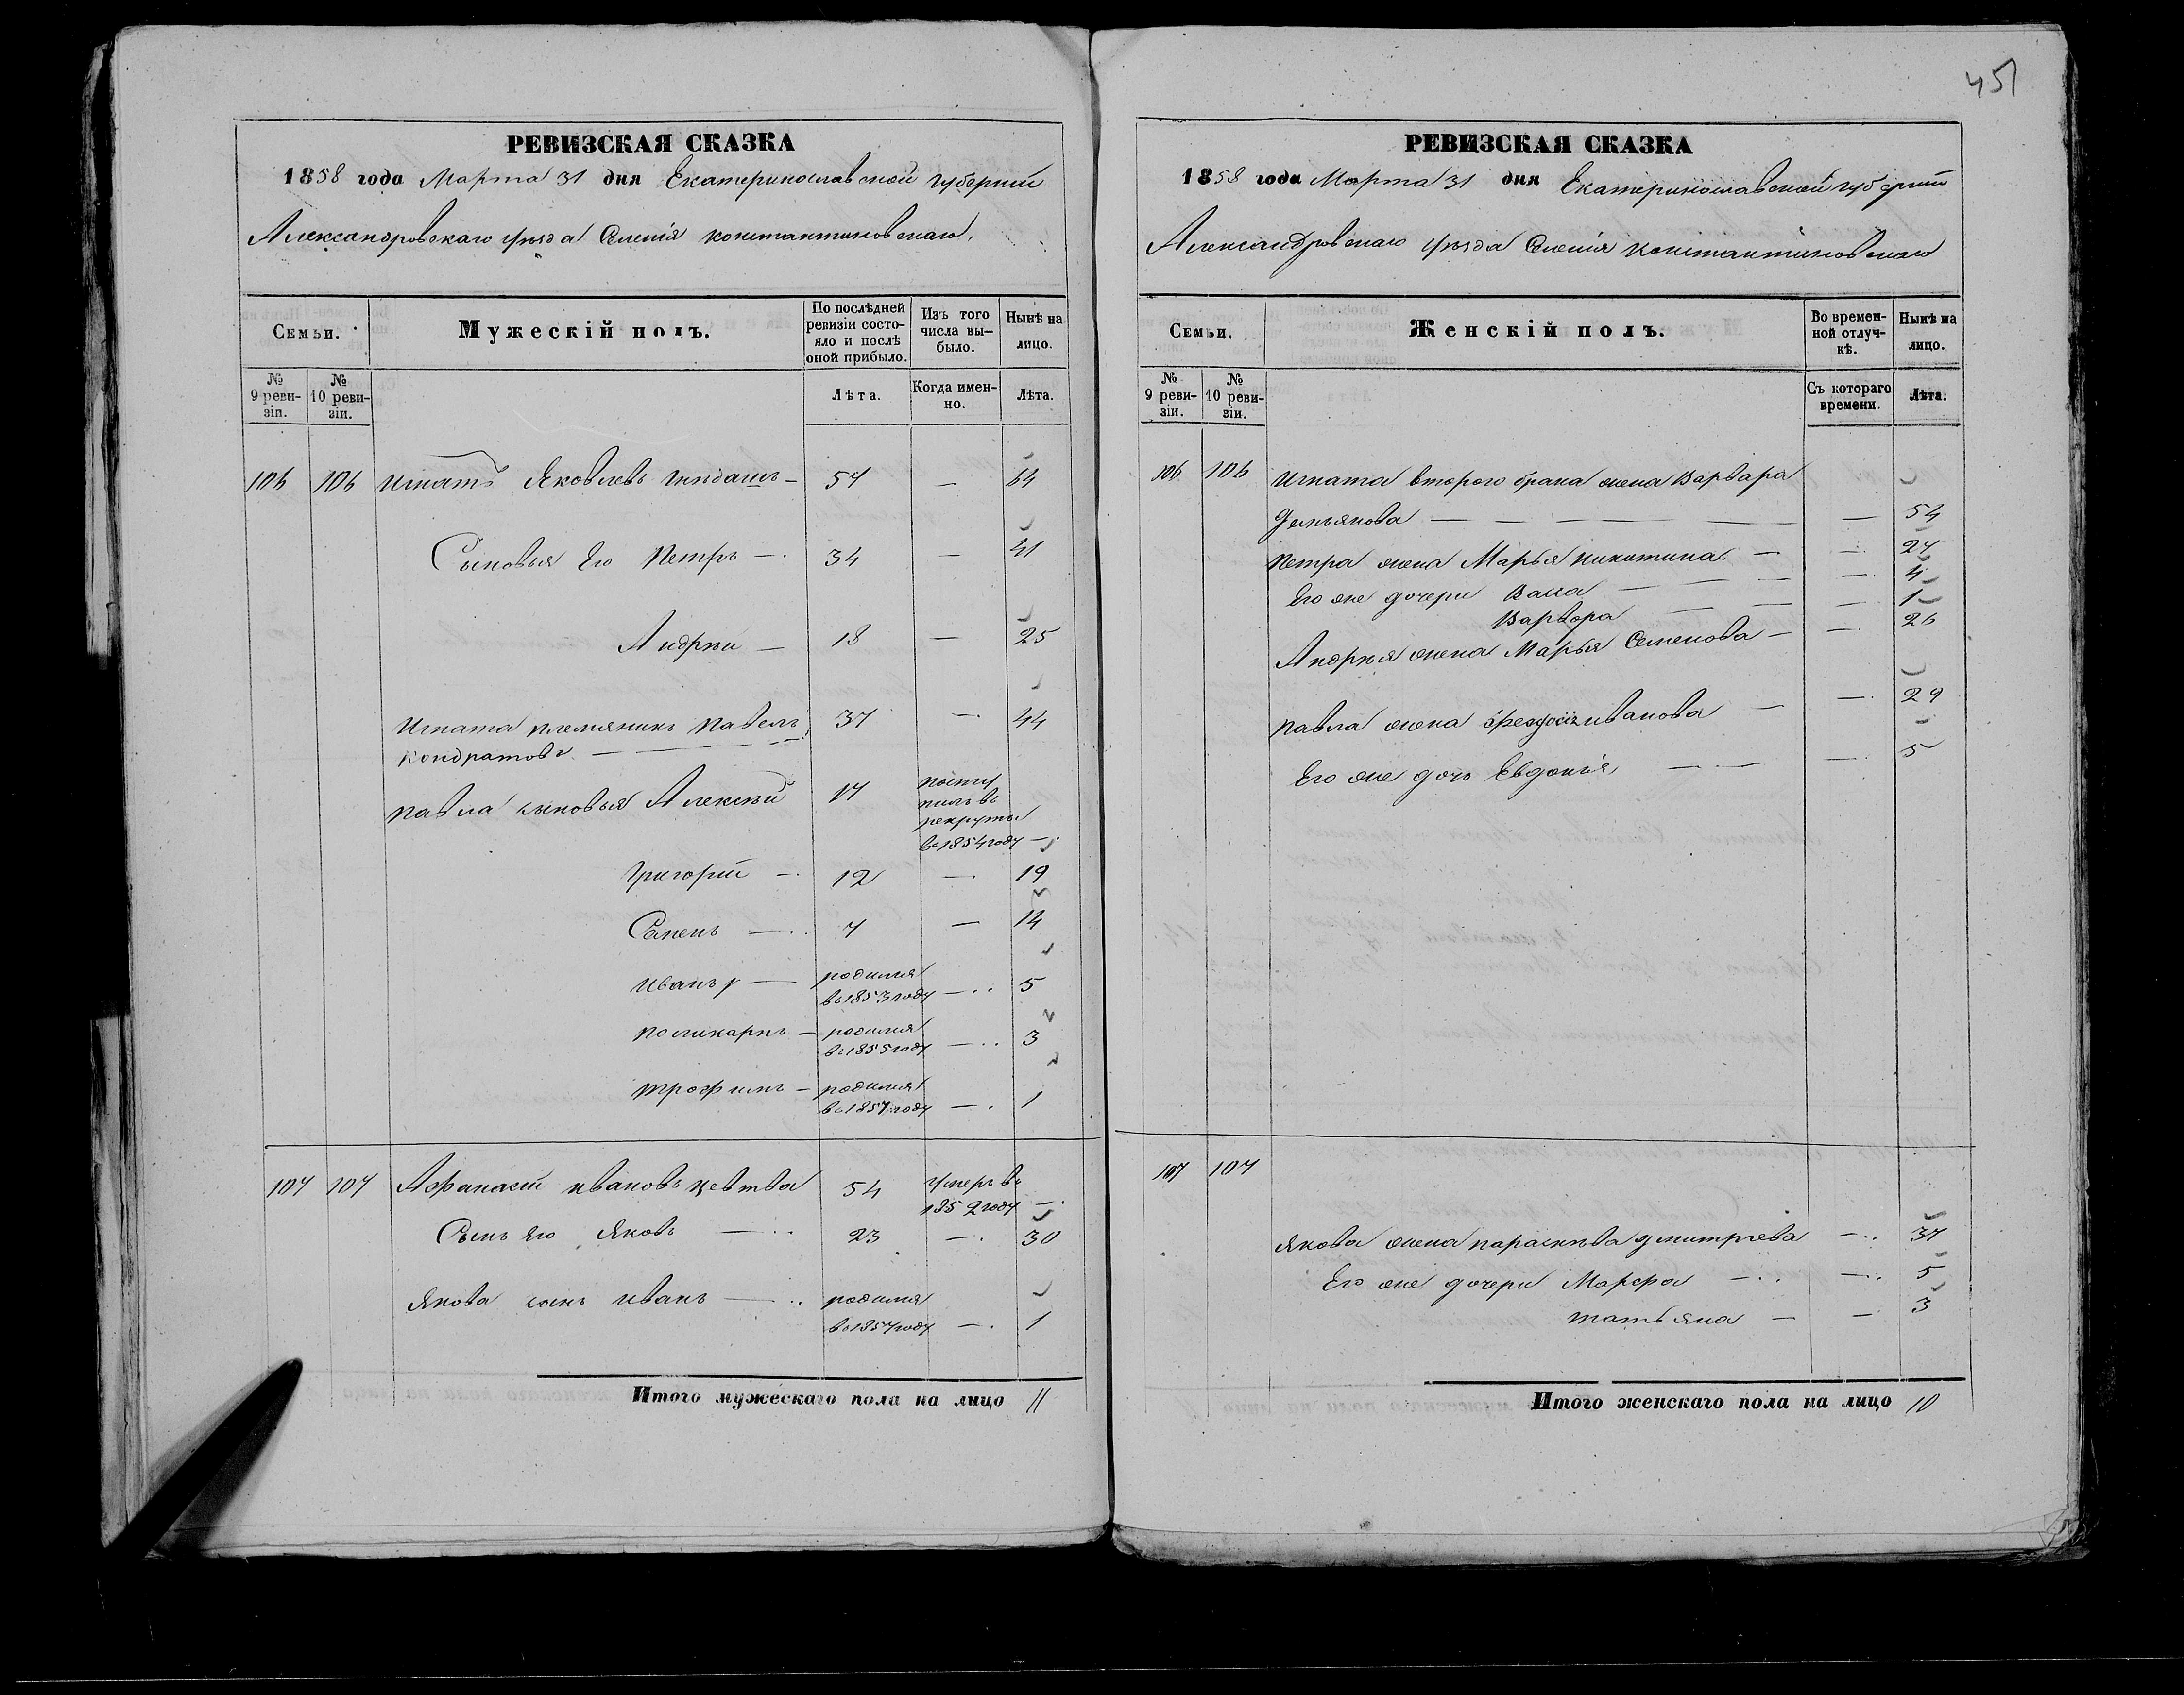 451
РЕВИЗСКАЯ СКАЗКА
1858 года Марта 31 дня Екатеринославской губернии
Александровскаго уѣзда Селенія Константиновскаго.
Семьи. Мужескій полъ. По послѣдней ревизіи состояло и послѣ оной прибыло. Изъ того числа выбыло. Нынѣ на лицо.
№ 9 ревизіи. № 10 ревизіи. Лѣта. Когда именно. Лѣта.
106 106 Игнатъ Яковлевъ — 57 — 64
Сыновья Его Петръ — 34 — 41
Андрѣй — 18 — 25
Игната племяникъ Павелъ 37 — 44
Кондратовъ —
Павла сыновья Алексѣй 17 посту
пилъ въ
рекруты
въ 1854 году —
Григорій — 12 — 19
Семенъ — 7 — 14
Иванъ — родился
въ 1853 году — 5
Поликарпъ — родился
въ 1855 году — 3
Трофимъ — родился
въ 1857 году — 1
107 107 Афанасій Ивановъ 54 умеръ въ
1852 году —
Сынъ Его Яковъ — 23 — 30
Якова сынъ Иванъ — родился
въ 1857 году — 1
Итого мужескаго пола на лицо 11
РЕВИЗСКАЯ СКАЗКА
1858 года Марта 31 дня Екатеринославской губерніи
Александровскаго уѣзда Селенія Константиновскаго
Семьи. Женскій полъ. Во временной отлучкѣ. Нынѣ на лицо.
№ 9 ревизіи. № 10 ревизіи. Съ котораго времени. Лѣта.
106 106 Игната втораго брака жена Варвара
Демьянова — — 54
Петра жена Марья Никитина — — 27
Его же дочери Васса — — 4
Варвора — — 1
Андрѣя жена Марья Семенова — — 26
Павла жена Иванова — — 29
Его же дочь Евдокія — — 5
107 107
Якова жена Параскѣва Дмитріева — 37
Его же дочери Марфа — — 5
Татьяна — — 3
Итого женскаго пола на лицо 10